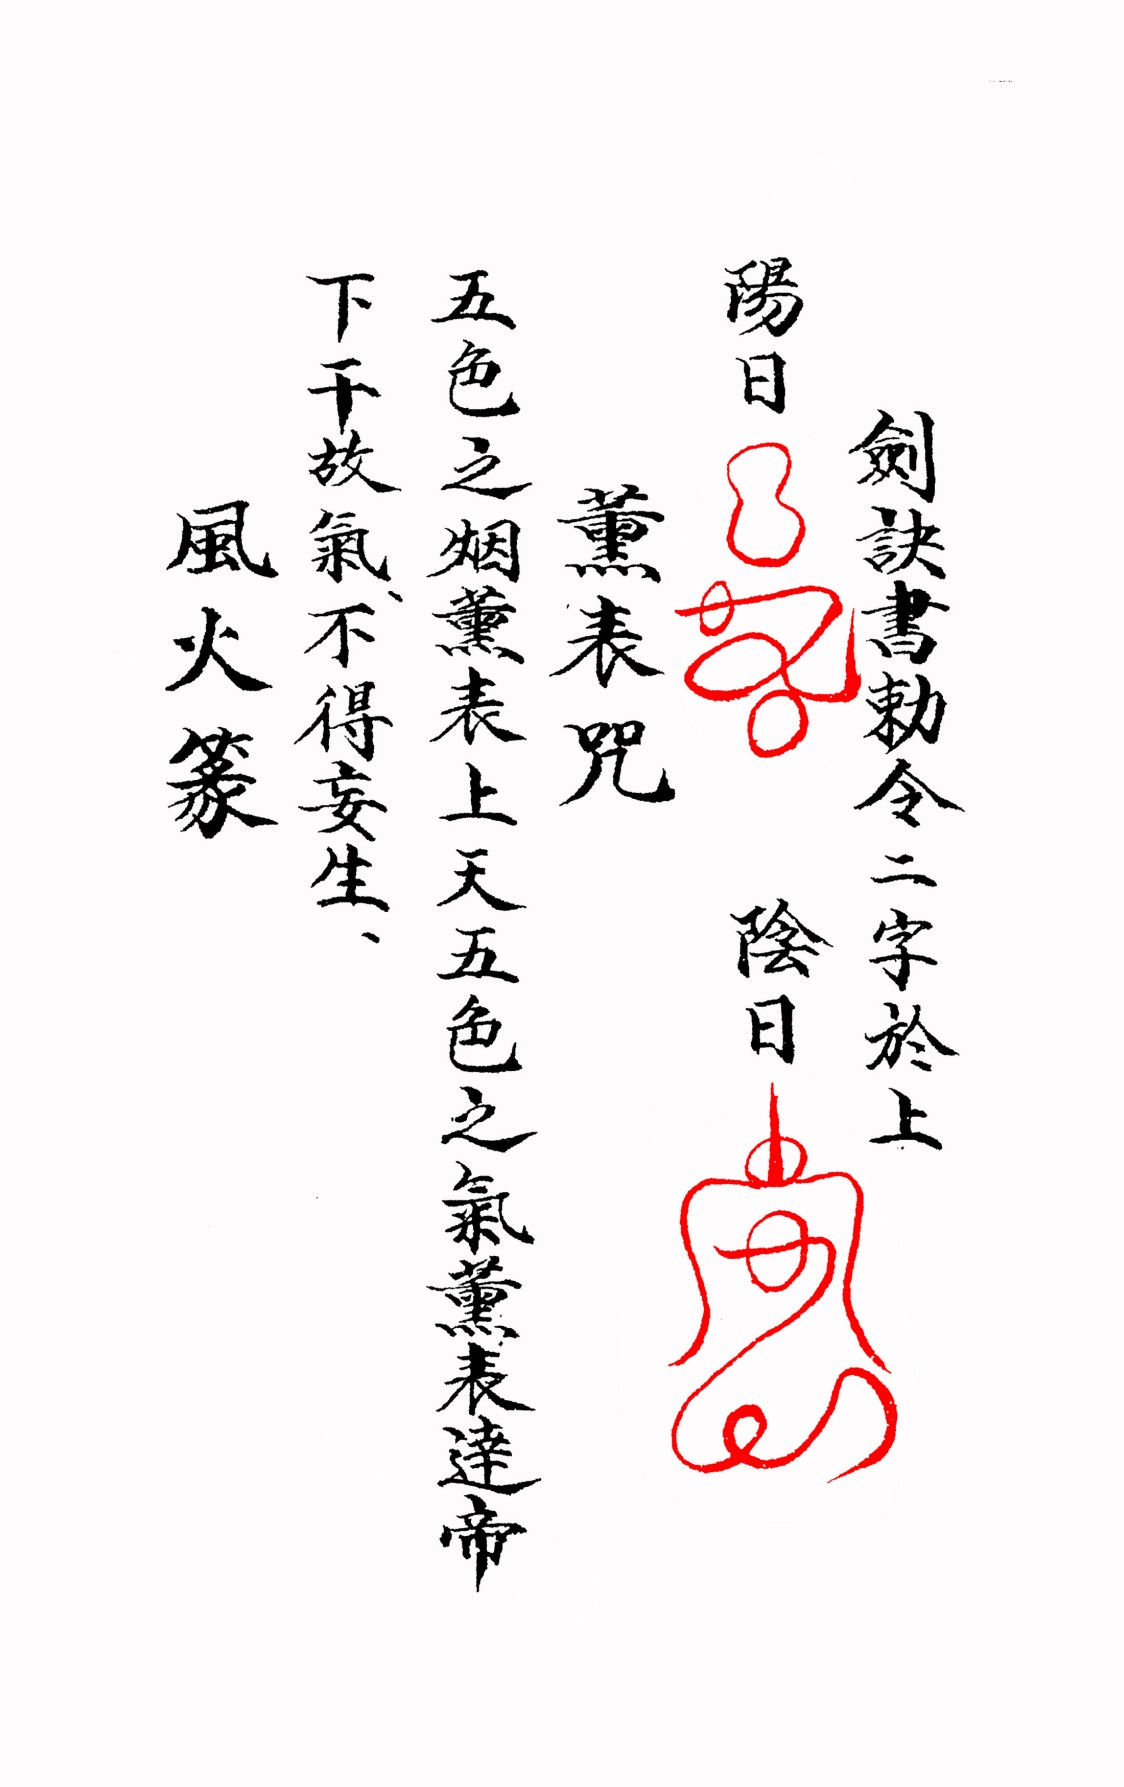 劍訣書勅令二字於上
陽日 陰日
薰表咒
五色之烟薰表上天五色之氣薰表達帝
下干故氣、不得妄生、
風火篆